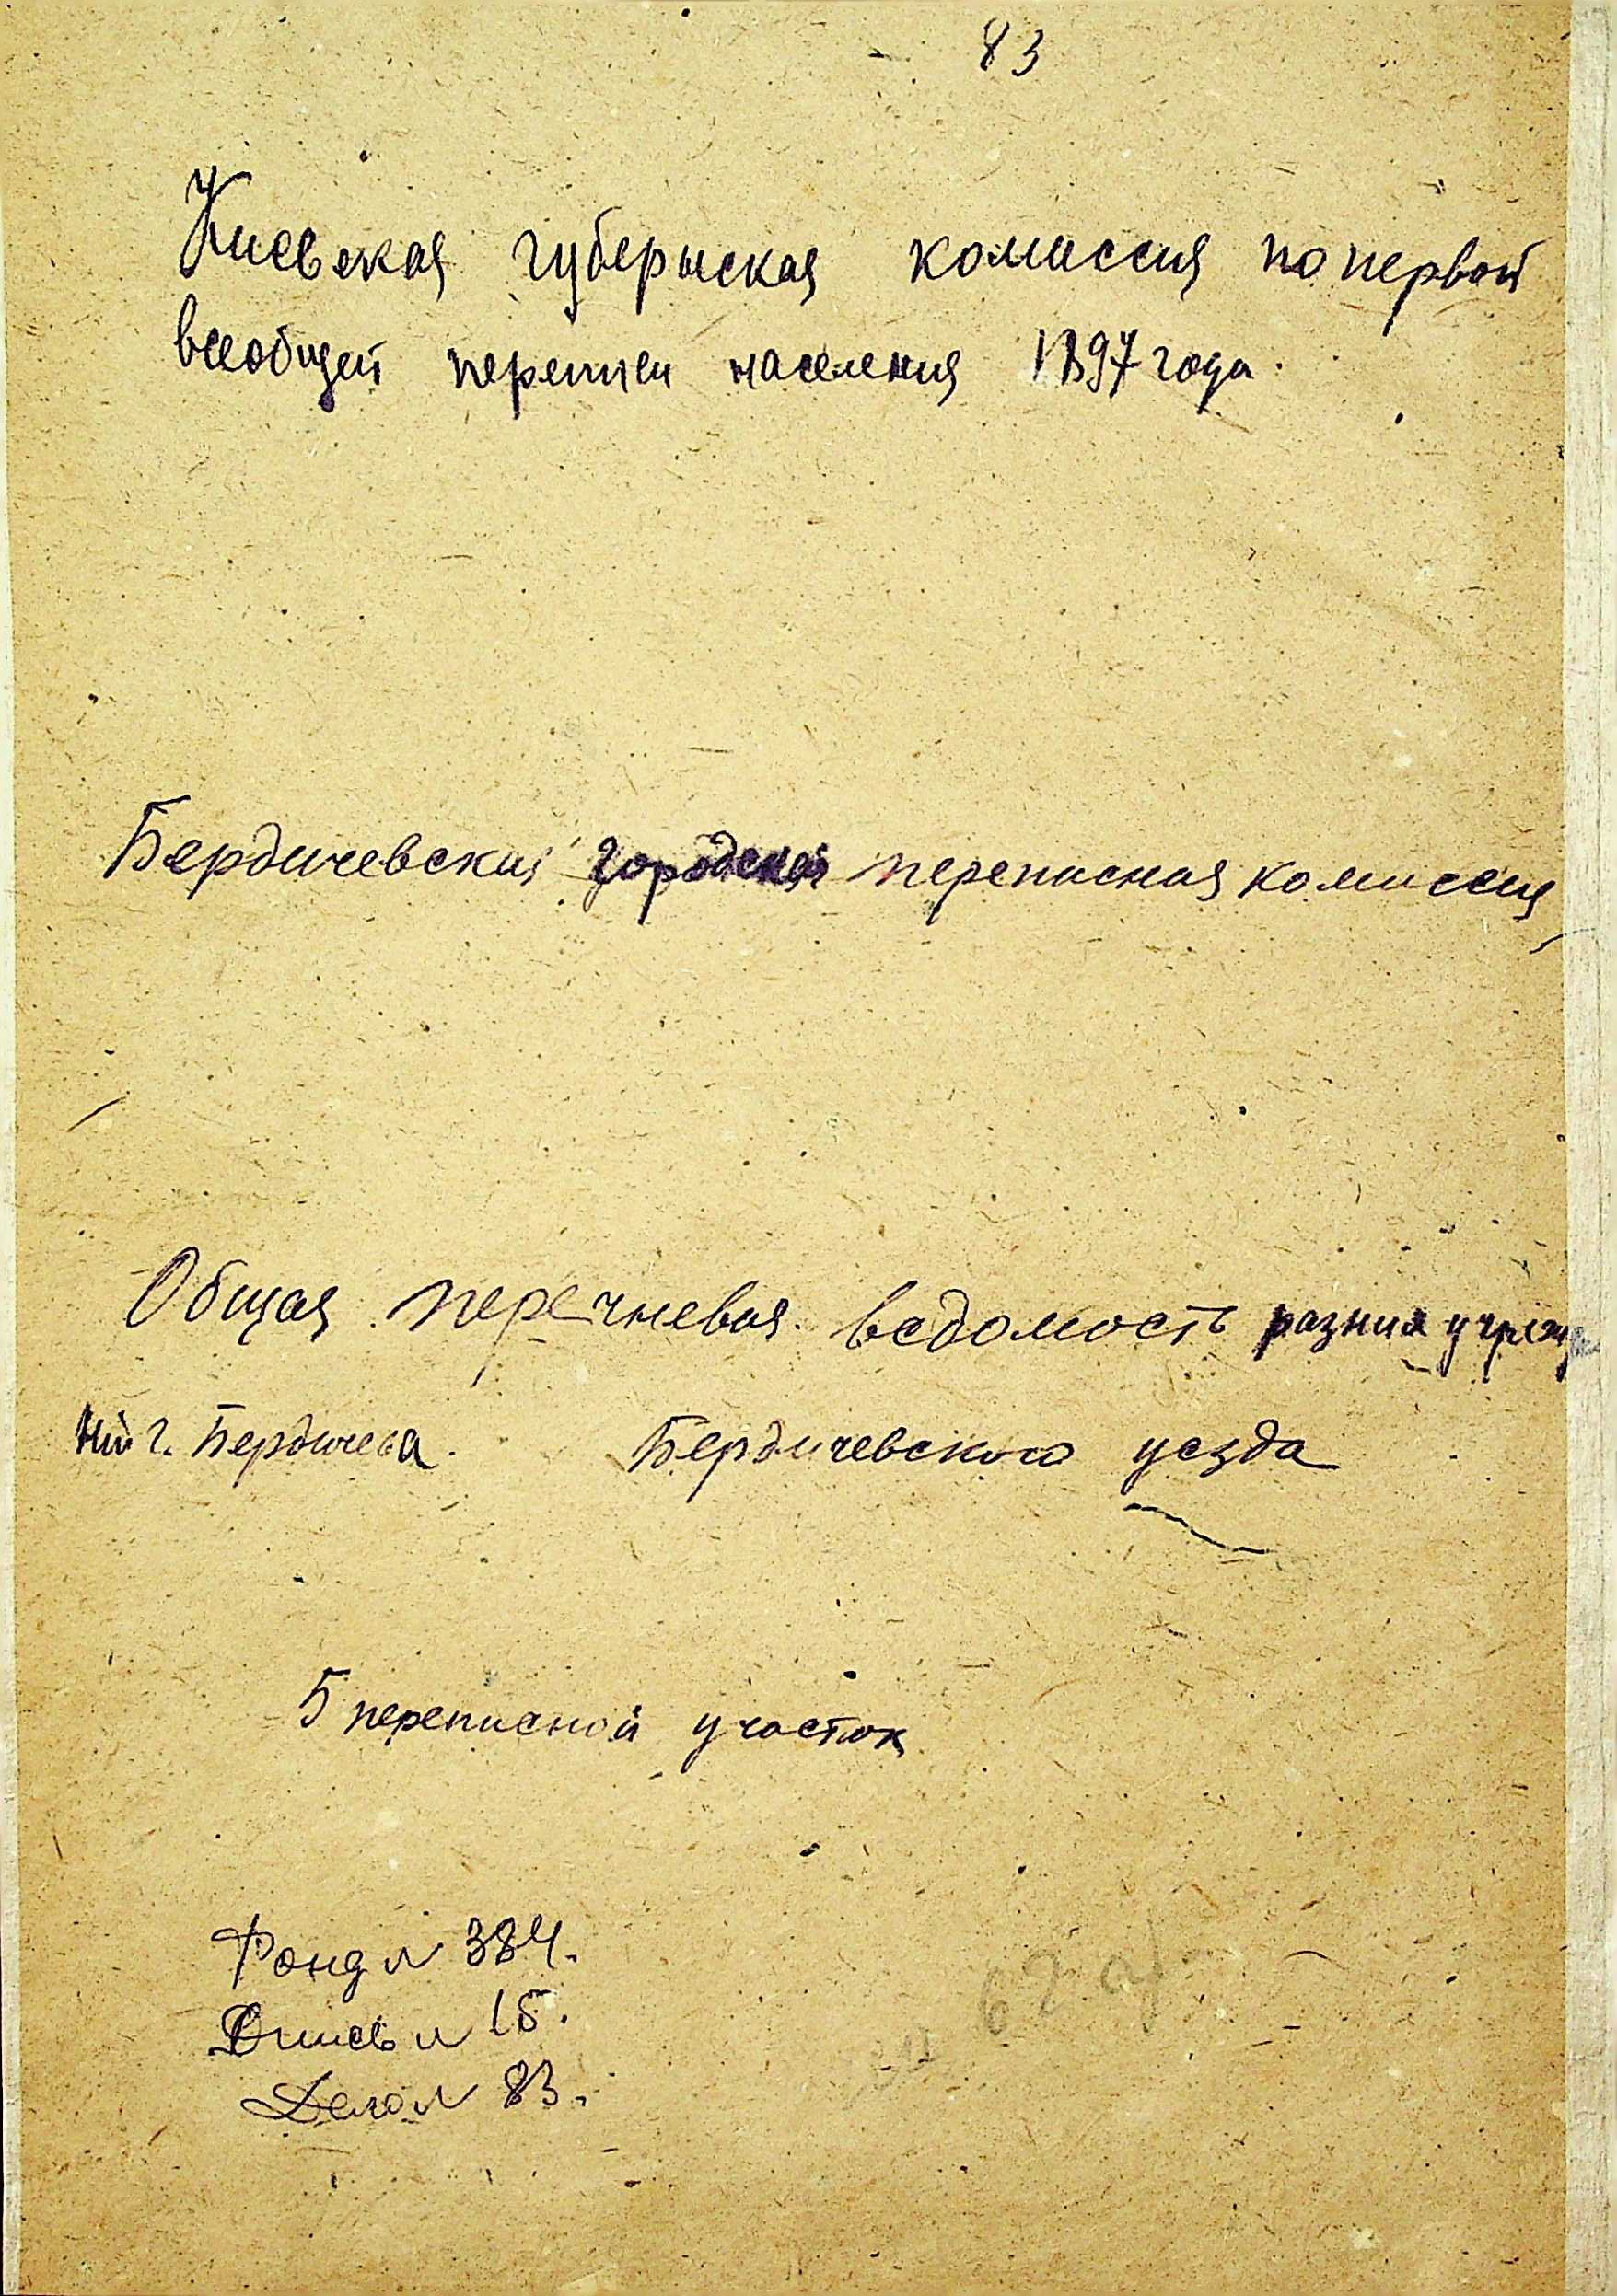 83
Киевская губернская комиссия по первой
всеобщей переписи населения 1897 года.
Бердичевская городская переписная комиссия
Общая перечневая ведомость разных учрежде
ний г. Бердичева. Бердичевского уезда
5 переписной участок
Фонд № 384.
Опись № 15.
Дело № 83.